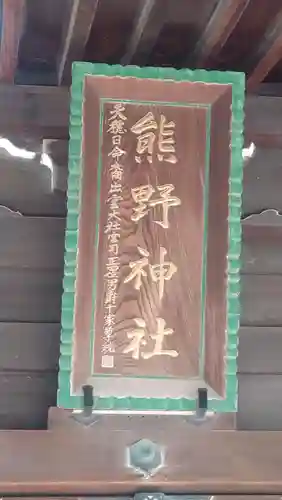 熊野神社
天穂日命裔出雲大社宮司正位男爵千家尊